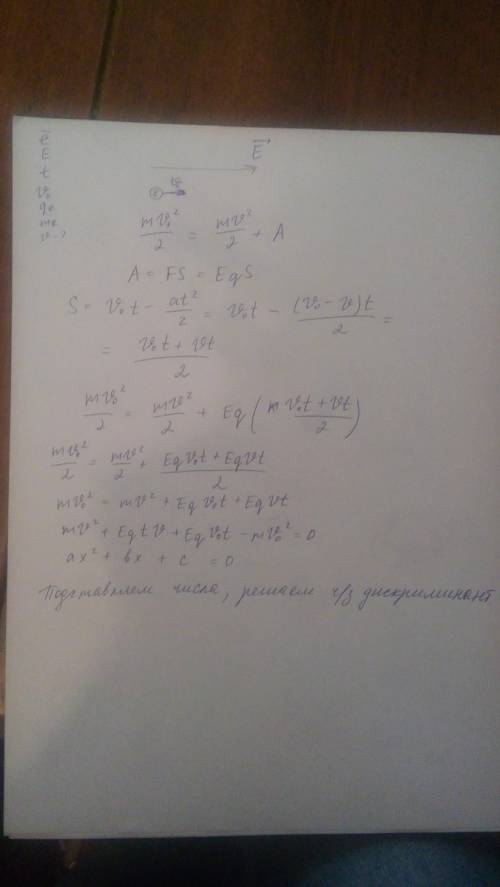 ē
E
t
v₀
q₀
mₑ
v - ?
E⃗
v₀
mv₀²/2 = mv²/2 + A
A = FS = EqS
S = v₀t - at²/2 = v₀t - (v₀ - v)t/2 =
= (v₀t + vt)/2
mv₀²/2 = mv²/2 + Eq(m (v₀t + vt)/2)
mv₀²/2 = mv²/2 + (Eqv₀t + Eqvt)/2
mv₀² = mv² + Eqv₀t + Eqvt
mv² + Eqtv + Eqv₀t - mv₀² = 0
ax² + bx + c = 0
Подставляем числа, решаем ч/з дискриминант